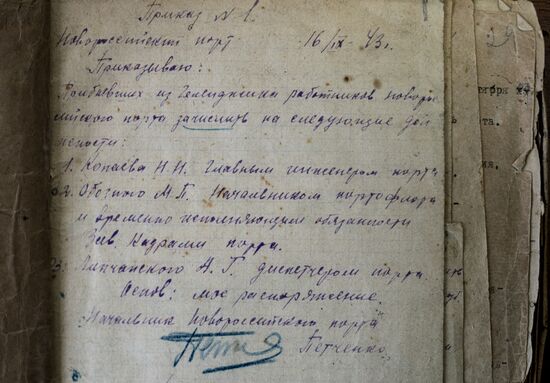 Приказ N 1.
Новороссийский порт 16/IX - 43 г.
Приказываю:
Прибывших из Геленджика работников новорос
сийского порта зачислить на следующие дол
жности:
1. Копаева Н.И. Главным инженером порта
2. Обозного М.П. Начальником портофлота
и временно исполняющим обязанности
Зав. Кадрами порта.
3. А.Г. диспетчером порта
Основ: мое распоряжение.
Начальник Новороссийского порта
Петченко
29
тября
та.